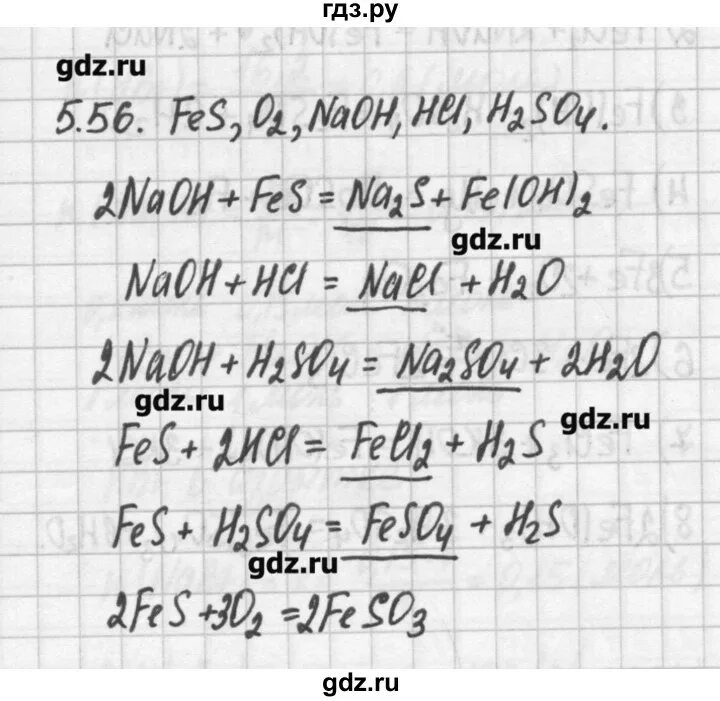 гдз.ру
gdz.ru
5.56. FeS, O₂, NaOH, HCl, H₂SO₄.
2NaOH + FeS = Na₂S + Fe(OH)₂
gdz.ru
NaOH + HCl = NaCl + H₂O
2NaOH + H₂SO₄ = Na₂SO₄ + 2H₂O
gdz.ru
gdz.ru
FeS + 2HCl = FeCl₂ + H₂S
FeS + H₂SO₄ = FeSO₄ + H₂S
gdz.ru
2FeS + 3O₂ = 2FeSO₃
gdz.ru